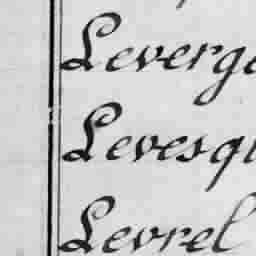 Leverge
Levesqu
Levrel